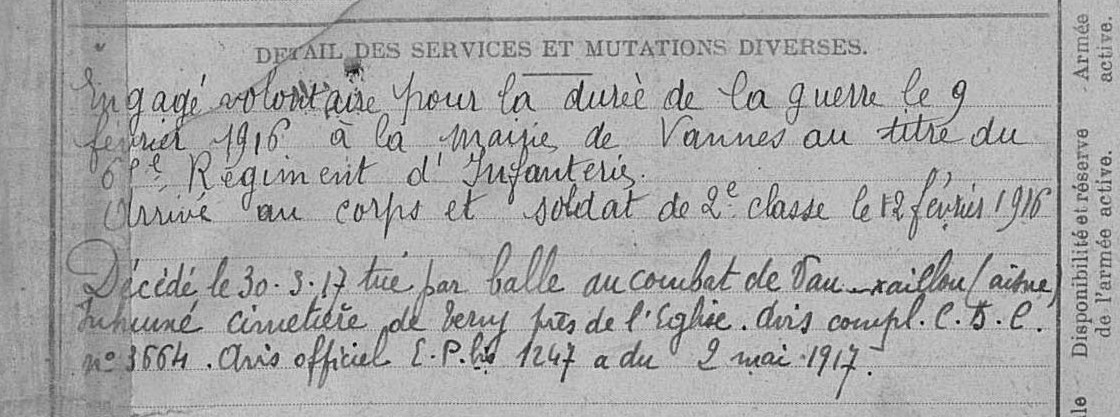 DETAIL DES SERVICES ET MUTATIONS DIVERSES.
Engagé volontaire pour la durée de la guerre le 9
février 1916 à la mairie de Vannes au titre du
Régiment d'Infanterie.
Arrivé au corps et soldat de 2e classe le 12 février 1916
Décédé le 30.3.17 tué par balle au combat de Vauxaillon (aisne)
Inhumé cimetière de Terny près de l'Eglise. Avis compl. C.D.C.
n° 3664. Avis officiel E.P. bis 1247 a du 2 mai 1917.
Armée active.
Disponibilité et réserve de l'armée active.